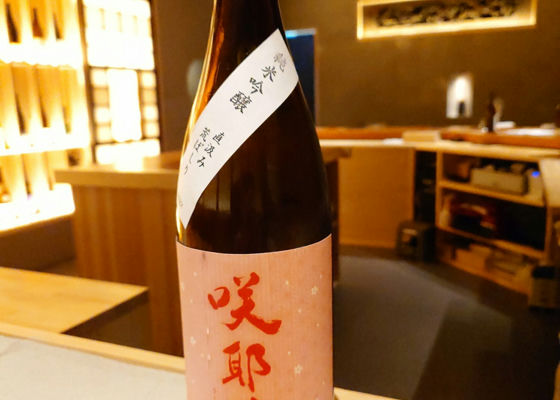 純米吟醸
直汲み
荒ばしり
咲耶